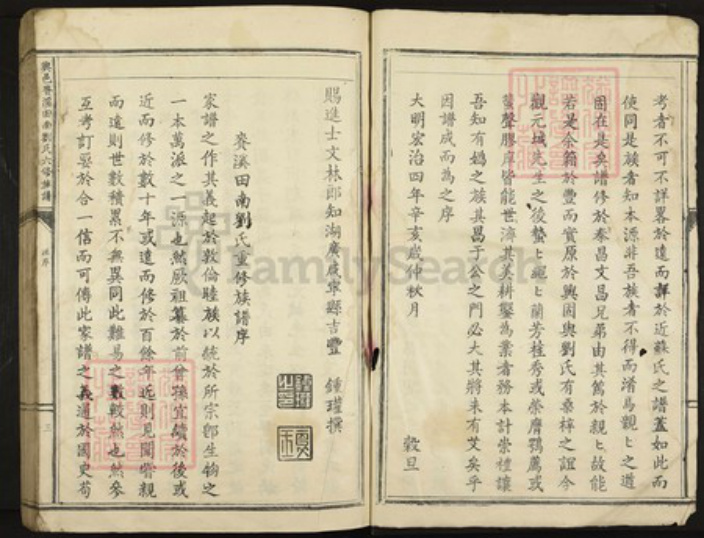 考者不可不詳畧於遠而詳於近蘇氏之譜蓋如此而
使同是族者知本源非吾族者不得而潛焉觀ヒ之道
固在是矣譜修於泰昌文昌兄弟由其篤於親ヒ故能
若是余籍於豐而實原於興固與劉氏有桑梓之誼今
觀元城先生之後蟄ヒ繩ヒ蘭芳桂秀或榮膺鶚薦或
蜚聲膠庠皆能世濟其美耕鑿為業者務本計崇禮讓
吾知有媯之族其昌于公之門必大其將來有艾矣乎
因譜成而為之序
大明宏治四年辛亥歲仲秋月 穀旦
賜進士文林郎知湖廣咸寧縣吉豐 鍾瑾撰
麥溪田南劉氏重修族譜序
家譜之作其義起於敦倫睦族以統於所宗鄭生鈞之
一本萬派之一源也然厥祖纂於前曾孫宜續於後或
近而修於數十年或遠而修於百餘年近則見聞習親
而遠則世數積累不無異同此難易之數較然也然參
互考訂要於合一信而可傳此家譜之義通於國史苟
興邑 溪田南劉氏六修族譜
三
FamilySearch